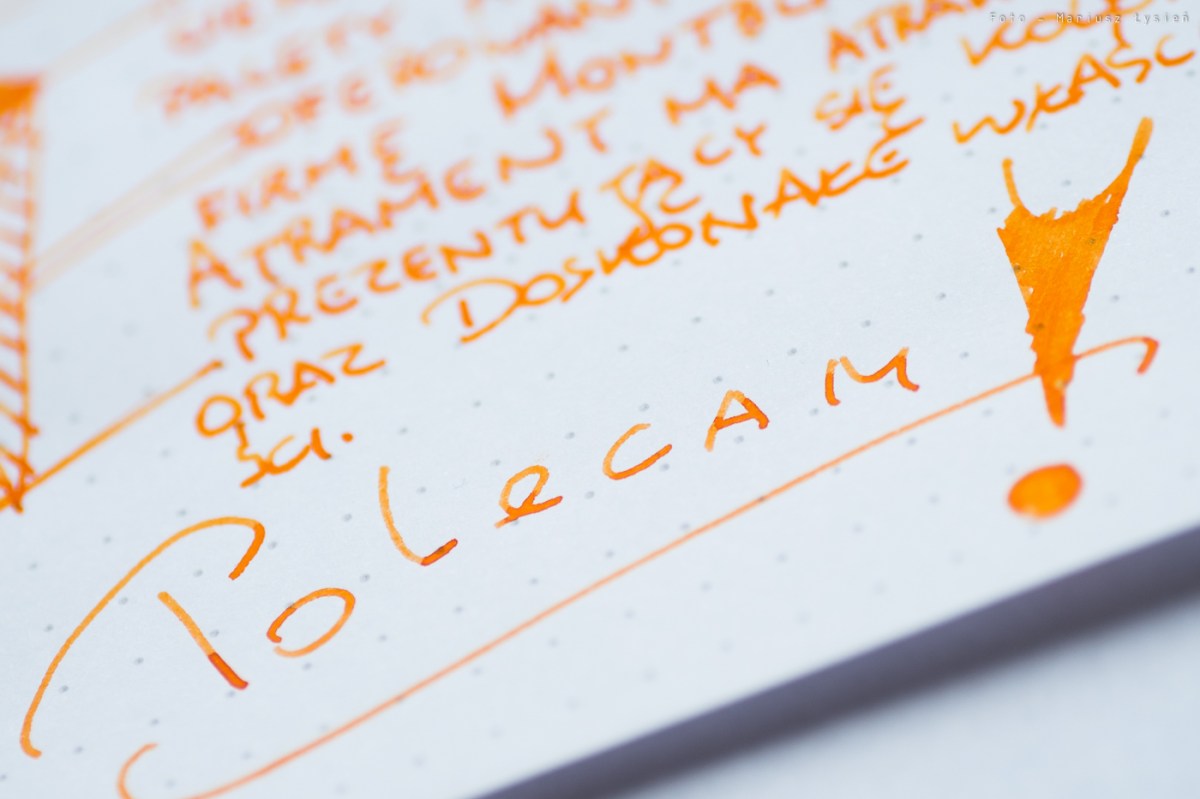 Foto - Mariusz Łysień
OFEROWAN
FIRMĘ MONTB
ATRAMENT MA ATRA
PREZENTUJĄCY SIĘ KOL
ORAZ DOSKONAŁE WŁAŚC
ŚCI.
POLECAM!